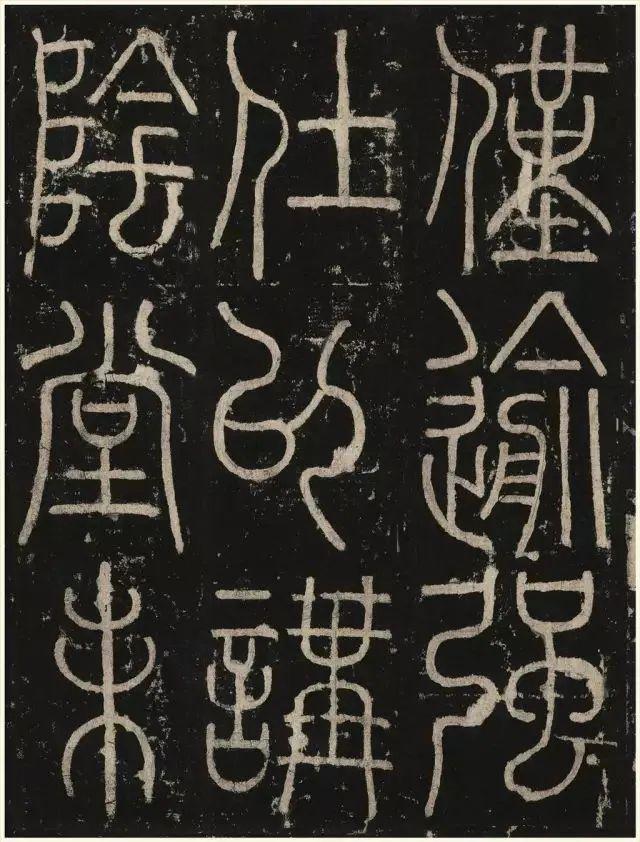 僅逾強
仕以講
陰堂未